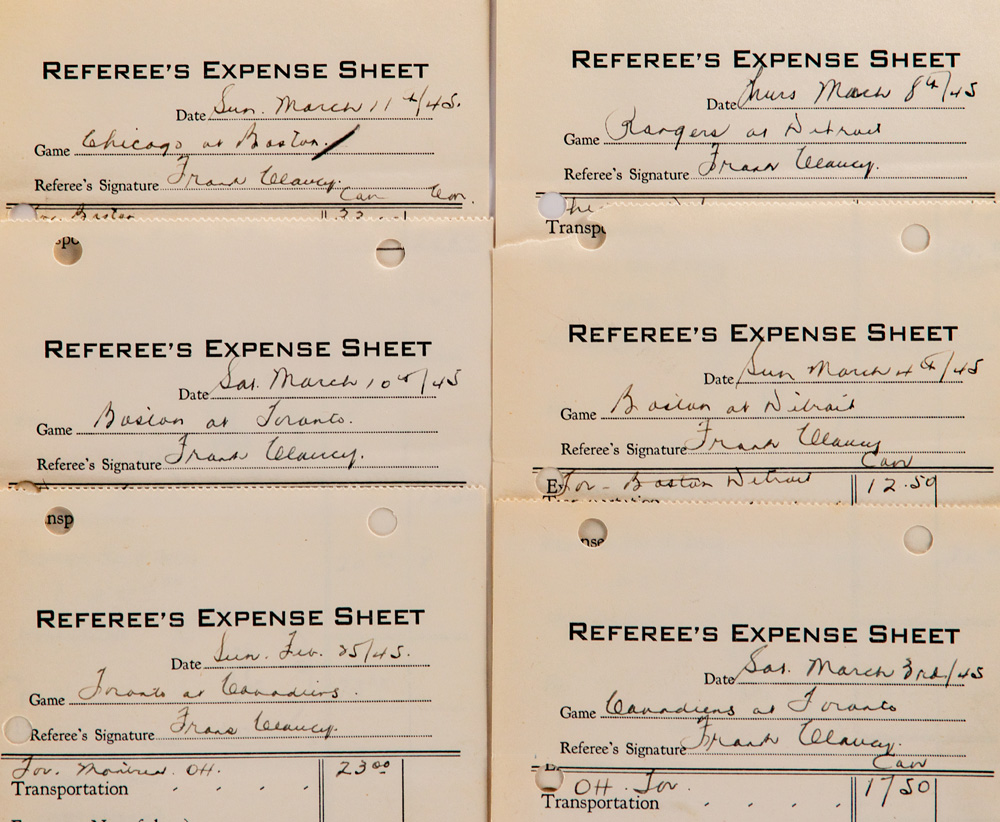 REFEREE'S EXPENSE SHEET
Date Sun. March 11th/45.
Game Chicago at Boston.
Referee's Signature Frank Clancy.
Can
Tor. Boston 22
REFEREE'S EXPENSE SHEET
Date Sat. March 10th/45
Game Boston at Toronto.
Referee's Signature Frank Clancy.
nsp
REFEREE'S EXPENSE SHEET
Date Sun. Feb. 25/45.
Game Toronto at Canadiens.
Referee's Signature Frank Clancy.
Tor. Montreal OH. 23 00
Transportation . . . .
REFEREE'S EXPENSE SHEET
Date Thurs March 8th/45
Game Rangers at Detroit
Referee's Signature Frank Clancy.
Transpo
REFEREE'S EXPENSE SHEET
Date Sun March 4th/45
Game Boston at Detroit
Referee's Signature Frank Clancy
Can
Tor - Boston Detroit 12.50
nse
REFEREE'S EXPENSE SHEET
Date Sat. March 3rd/45
Game Canadiens at Toronto
Referee's Signature Frank Clancy.
Can
OH. Tor. 17 50
Transportation . . . .